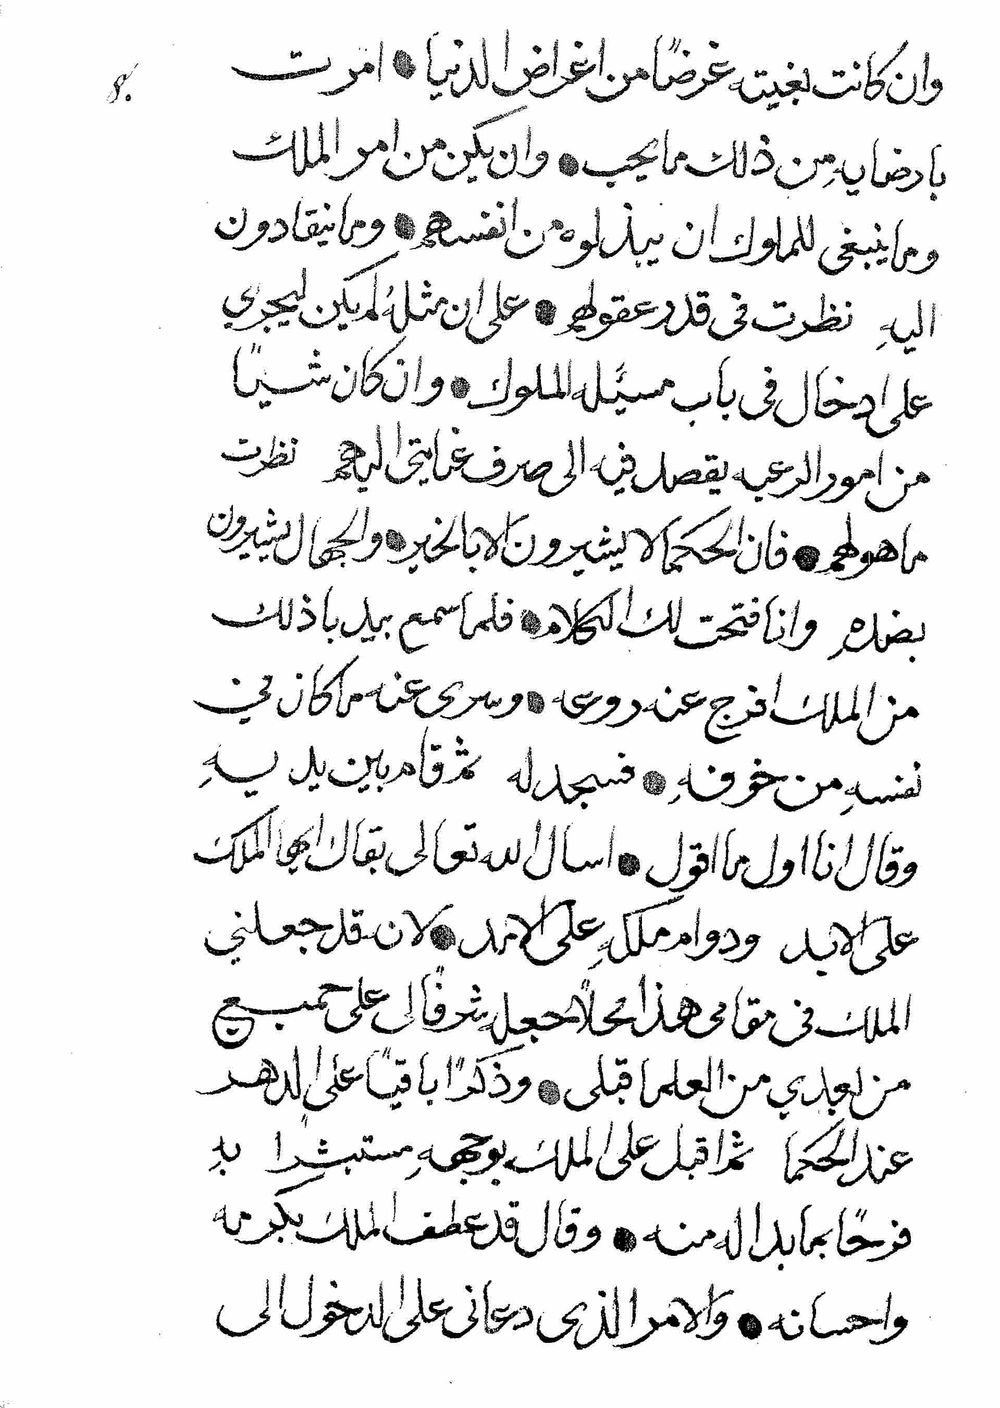 وان كانت بغيته غرضًا من اغراض الدنيا ● امرت
بارضايه من ذلك ما يجب ● وان يكن من امر الملك
وما ينبغي للملوك ان يبذلوه من انفسهم ● وما ينقادون
اليه نظرت في قدر عقولهم ● على ان مثله لم يكن ليجري
على ادخال في باب مسئله الملوك ● وان كان شيئًا
من امور الرعيه يقصد فيه الى صرف عنايتي اليهم نظرت
ما هو لهم ● فان الحكما لا يشيرون الا بالخير ● والجهال يشيرون
بضده وانا فتحت لك الكلام ● فلما سمع بيدبا ذلك
من الملك افرج عنه روعه ● وسرى عنه ما كان في
نفسه من خوفه ● فسجد له ثم قام بين يديه
وقال انا اول ما اقول ● اسال الله تعالى بقاك ايها الملك
على الابد ودوام ملكه على الامد ● لان قد جعلني
الملك في مقامي هذا محلًا جعله شرفًا لي على جميع
من بعدي من العلما قبلي ● وذكرًا باقيًا على الدهر
عند الحكما ثم اقبل على الملك بوجهه مستبشرا به
فرحًا بما بدا له منه ● وقال قد عطف الملك بكرمه
واحسانه ● والامر الذي دعاني على الدخول الى